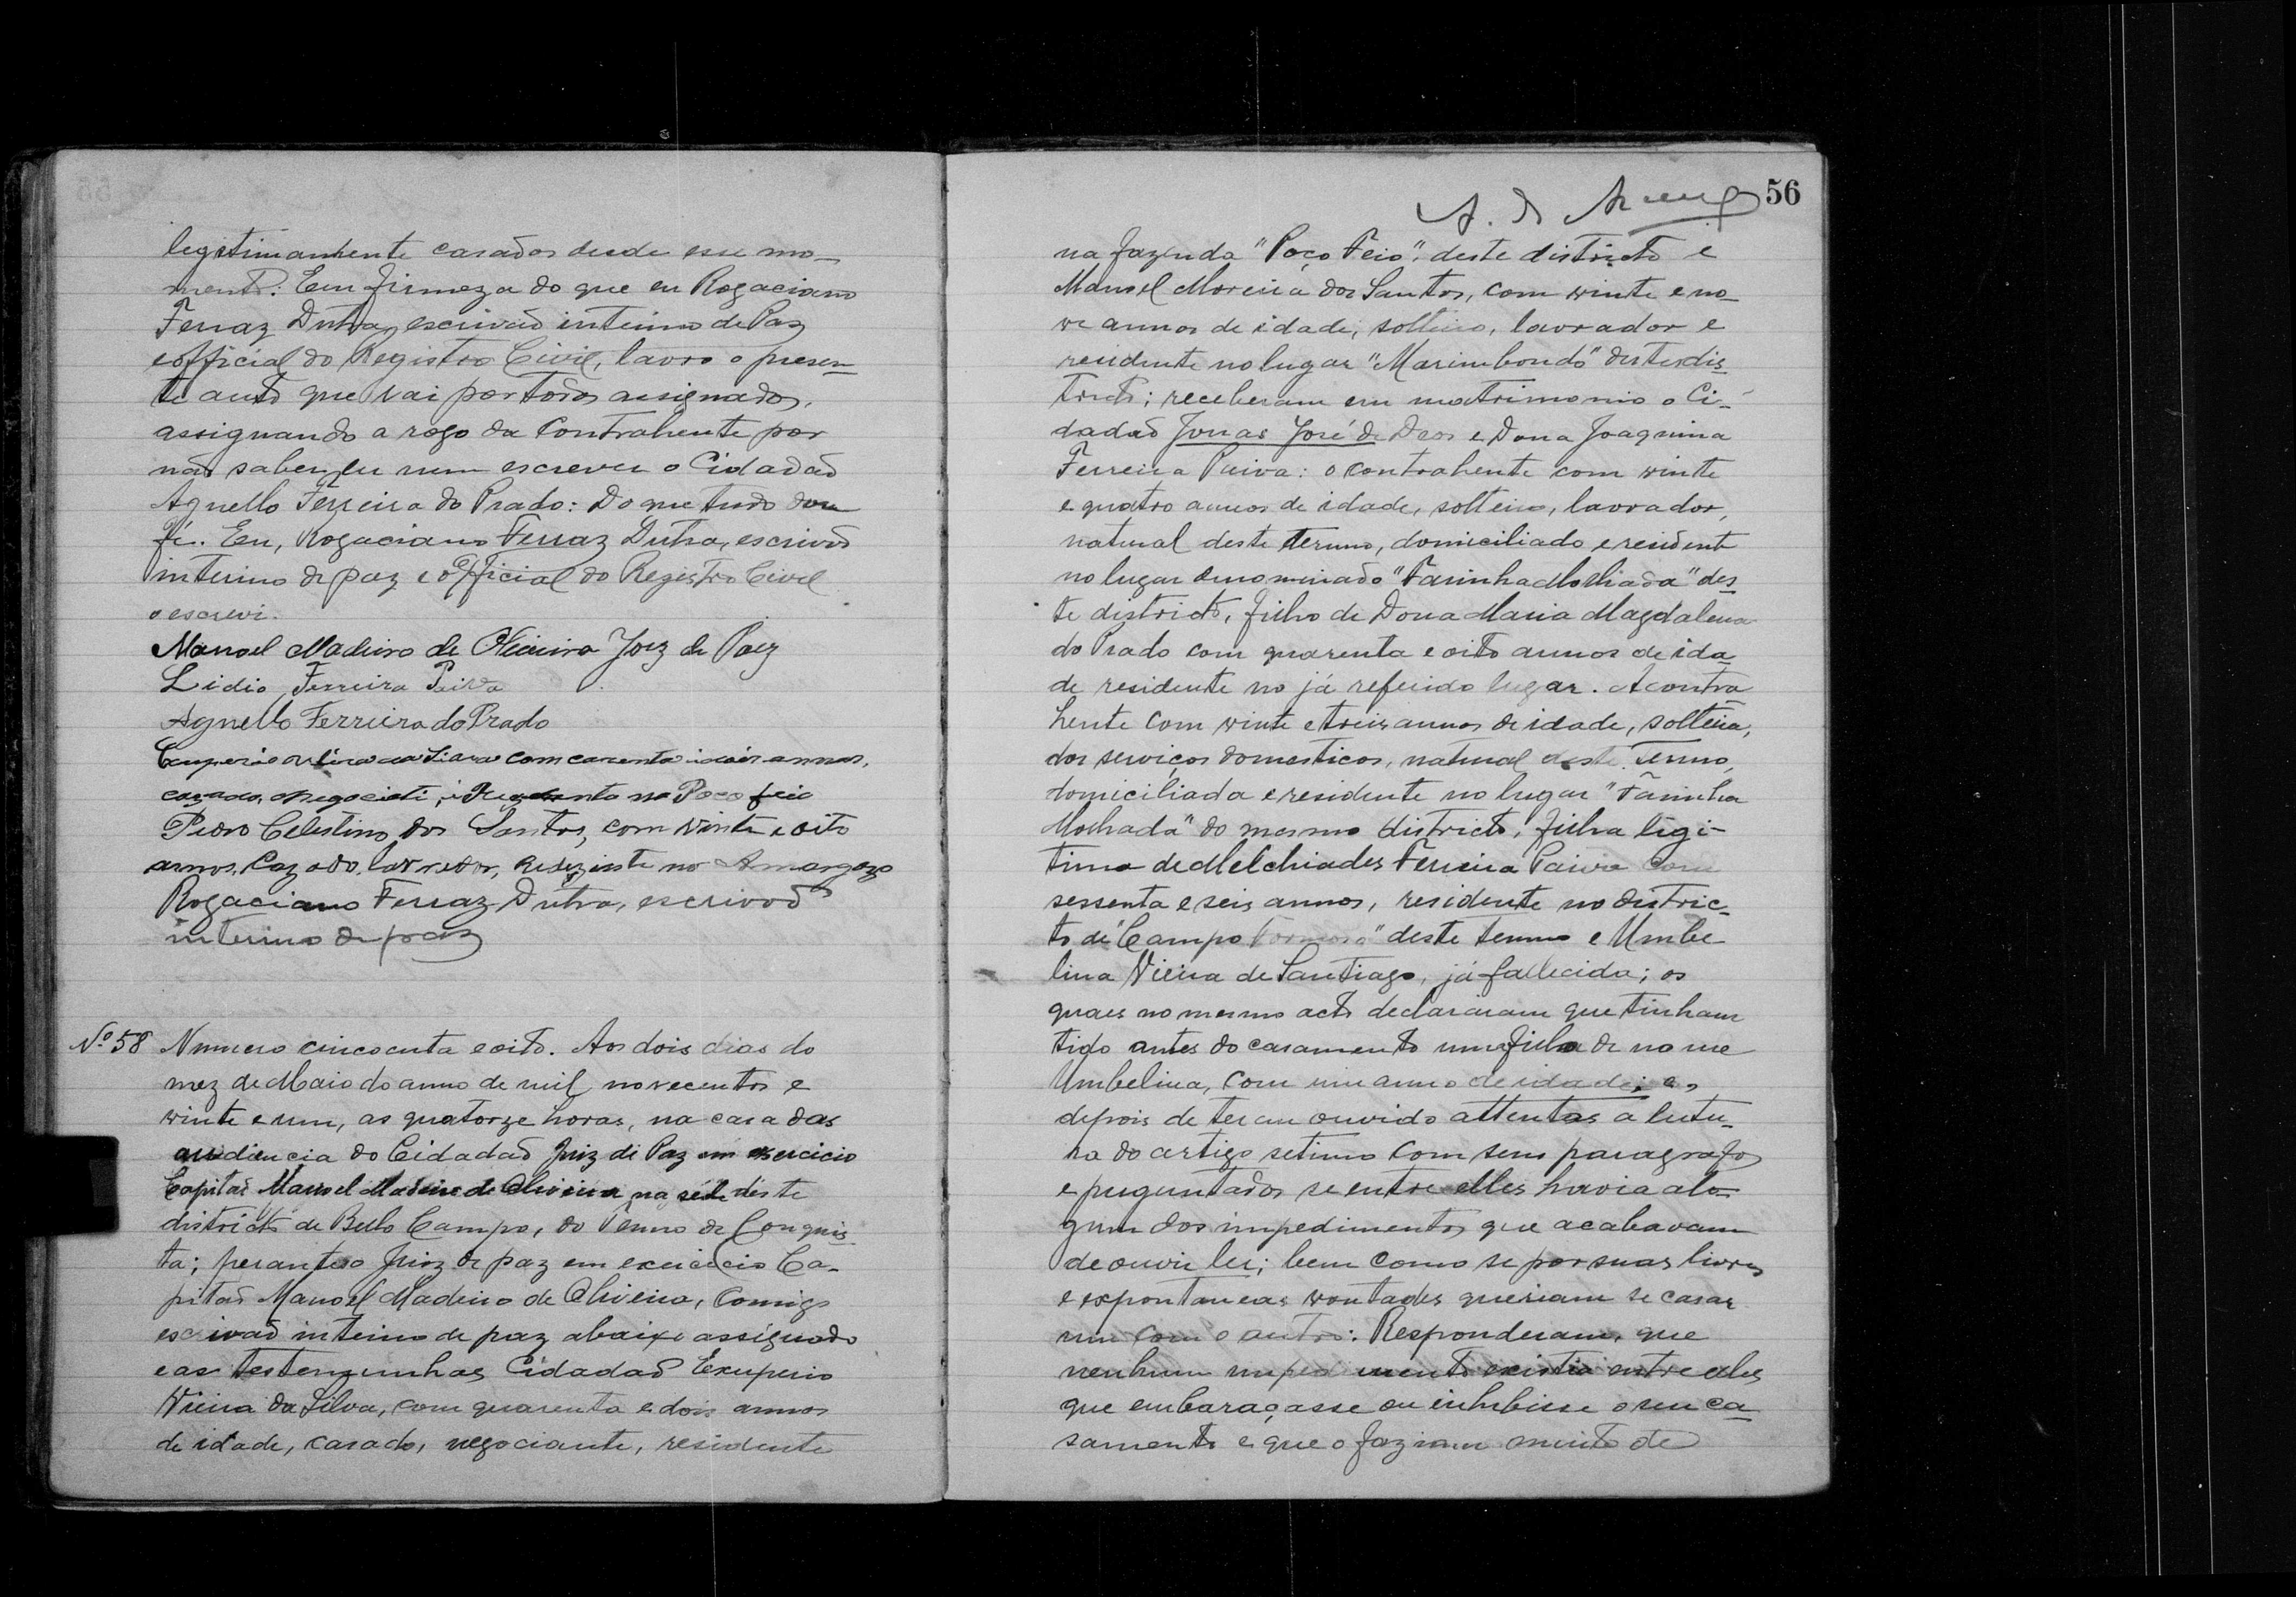 legitimamhente casados desde esse mo-
mento: Em firmeza do que eu Rogaciano
Ferraz Dutra, escrivaõ interino de Paz
e official do Registro Civil, lavro o presen-
te auto que vai por todos assignados,
assignando a rogo da Contrahente por
naõ saber ler nem escrever o Cidadaõ
Agnello Ferreira do Prado: Do que tudo dou
fé. Eu, Rogaciano Ferraz Dutra, escrivaõ
interino de paz e Official do Registro Civil
o escrevi.
Manoel Madeiro de Oliveira Joiz de Paz
Lidio Ferreira Paiva
Agnello Ferreira do Prado
com carenta idois annos,
cazado, negocicti, i Rezidente no Poco feio
Pedro Celestino dos Santos, com vinte e oito
annos, Cazado, lavrador, Rezidente no Amargozo
Rogaciano Ferraz Dutra, escrivaõ
interino de paz
Nº 58 Numero cincoenta e oito. Aos dois dias do
mez de Maio do anno de mil novecentos e
vinte e um, as quatorze horas, na casa das
audiencia do Cidadaõ Juiz de Paz em exercicio
Capitaõ Manoel Madeiro de Oliveira na séde deste
districto de Bello Campo, do Termo de Conquis-
ta; perante o Juiz de paz em exercicio Ca-
pitaõ Manoel Madeiro de Oliveira, Comigo
escrivaõ interino de paz abaixo assignado
e as Testemunhas Cidadaõ Exuperio
Vieira da Silva, com quarenta e dois annos
de idade, casado, negociante, residente
56
na fazenda "Poço Feio", deste districto e
Manoel Moreira dos Santos, com vinte e no-
ve annos de idade, solteiro, lavrador e
residente no lugar "Marimbondo" deste dis-
tricto; receberam em matrimonio o Ci-
dadaõ Jonas José de Deos e Dona Joaquina
Ferreira Paiva: o contrahente com vinte
e quatro annos de idade, solteiro, lavrador,
natural deste termo, domiciliado e residente
no lugar denominado "Farinha Molhada" des-
te districto, filho de Dona Maria Magdalena
do Prado com quarenta e oito annos de ida-
de residente no já referido lugar. A contra
hente com vinte e treis annos de idade, solteira,
dos serviços domesticos, natural deste Termo,
domiciliada e residente no lugar "Farinha
Molhada" do mesmo districto, filha legi-
tima de Melchiades Ferreira Paiva com
sessenta e seis annos, residente no distric-
to de "Campo Formoso" deste termo e Umbe-
lina Vieira de Santiago, já fallecida; os
quaes no mesmo acto declararam que tinham
tido antes do casamento uma filha de nome
Umbelina, com um anno de idade; e,
depois de terem ouvido attentos a leitu-
ra do artigo setimo com seus paragrafos
e preguntados se entre elles havia al-
gum dos impedimentos que acabavam
de ouvir ler; bem como se por suas livres
e expontaneas vontades queriam se casar
um com o outro: Responderam, que
nenhum impedimento existia entre eles
que embaraçasse ou inhibisse o seu ca-
samento e que o faziam muito de